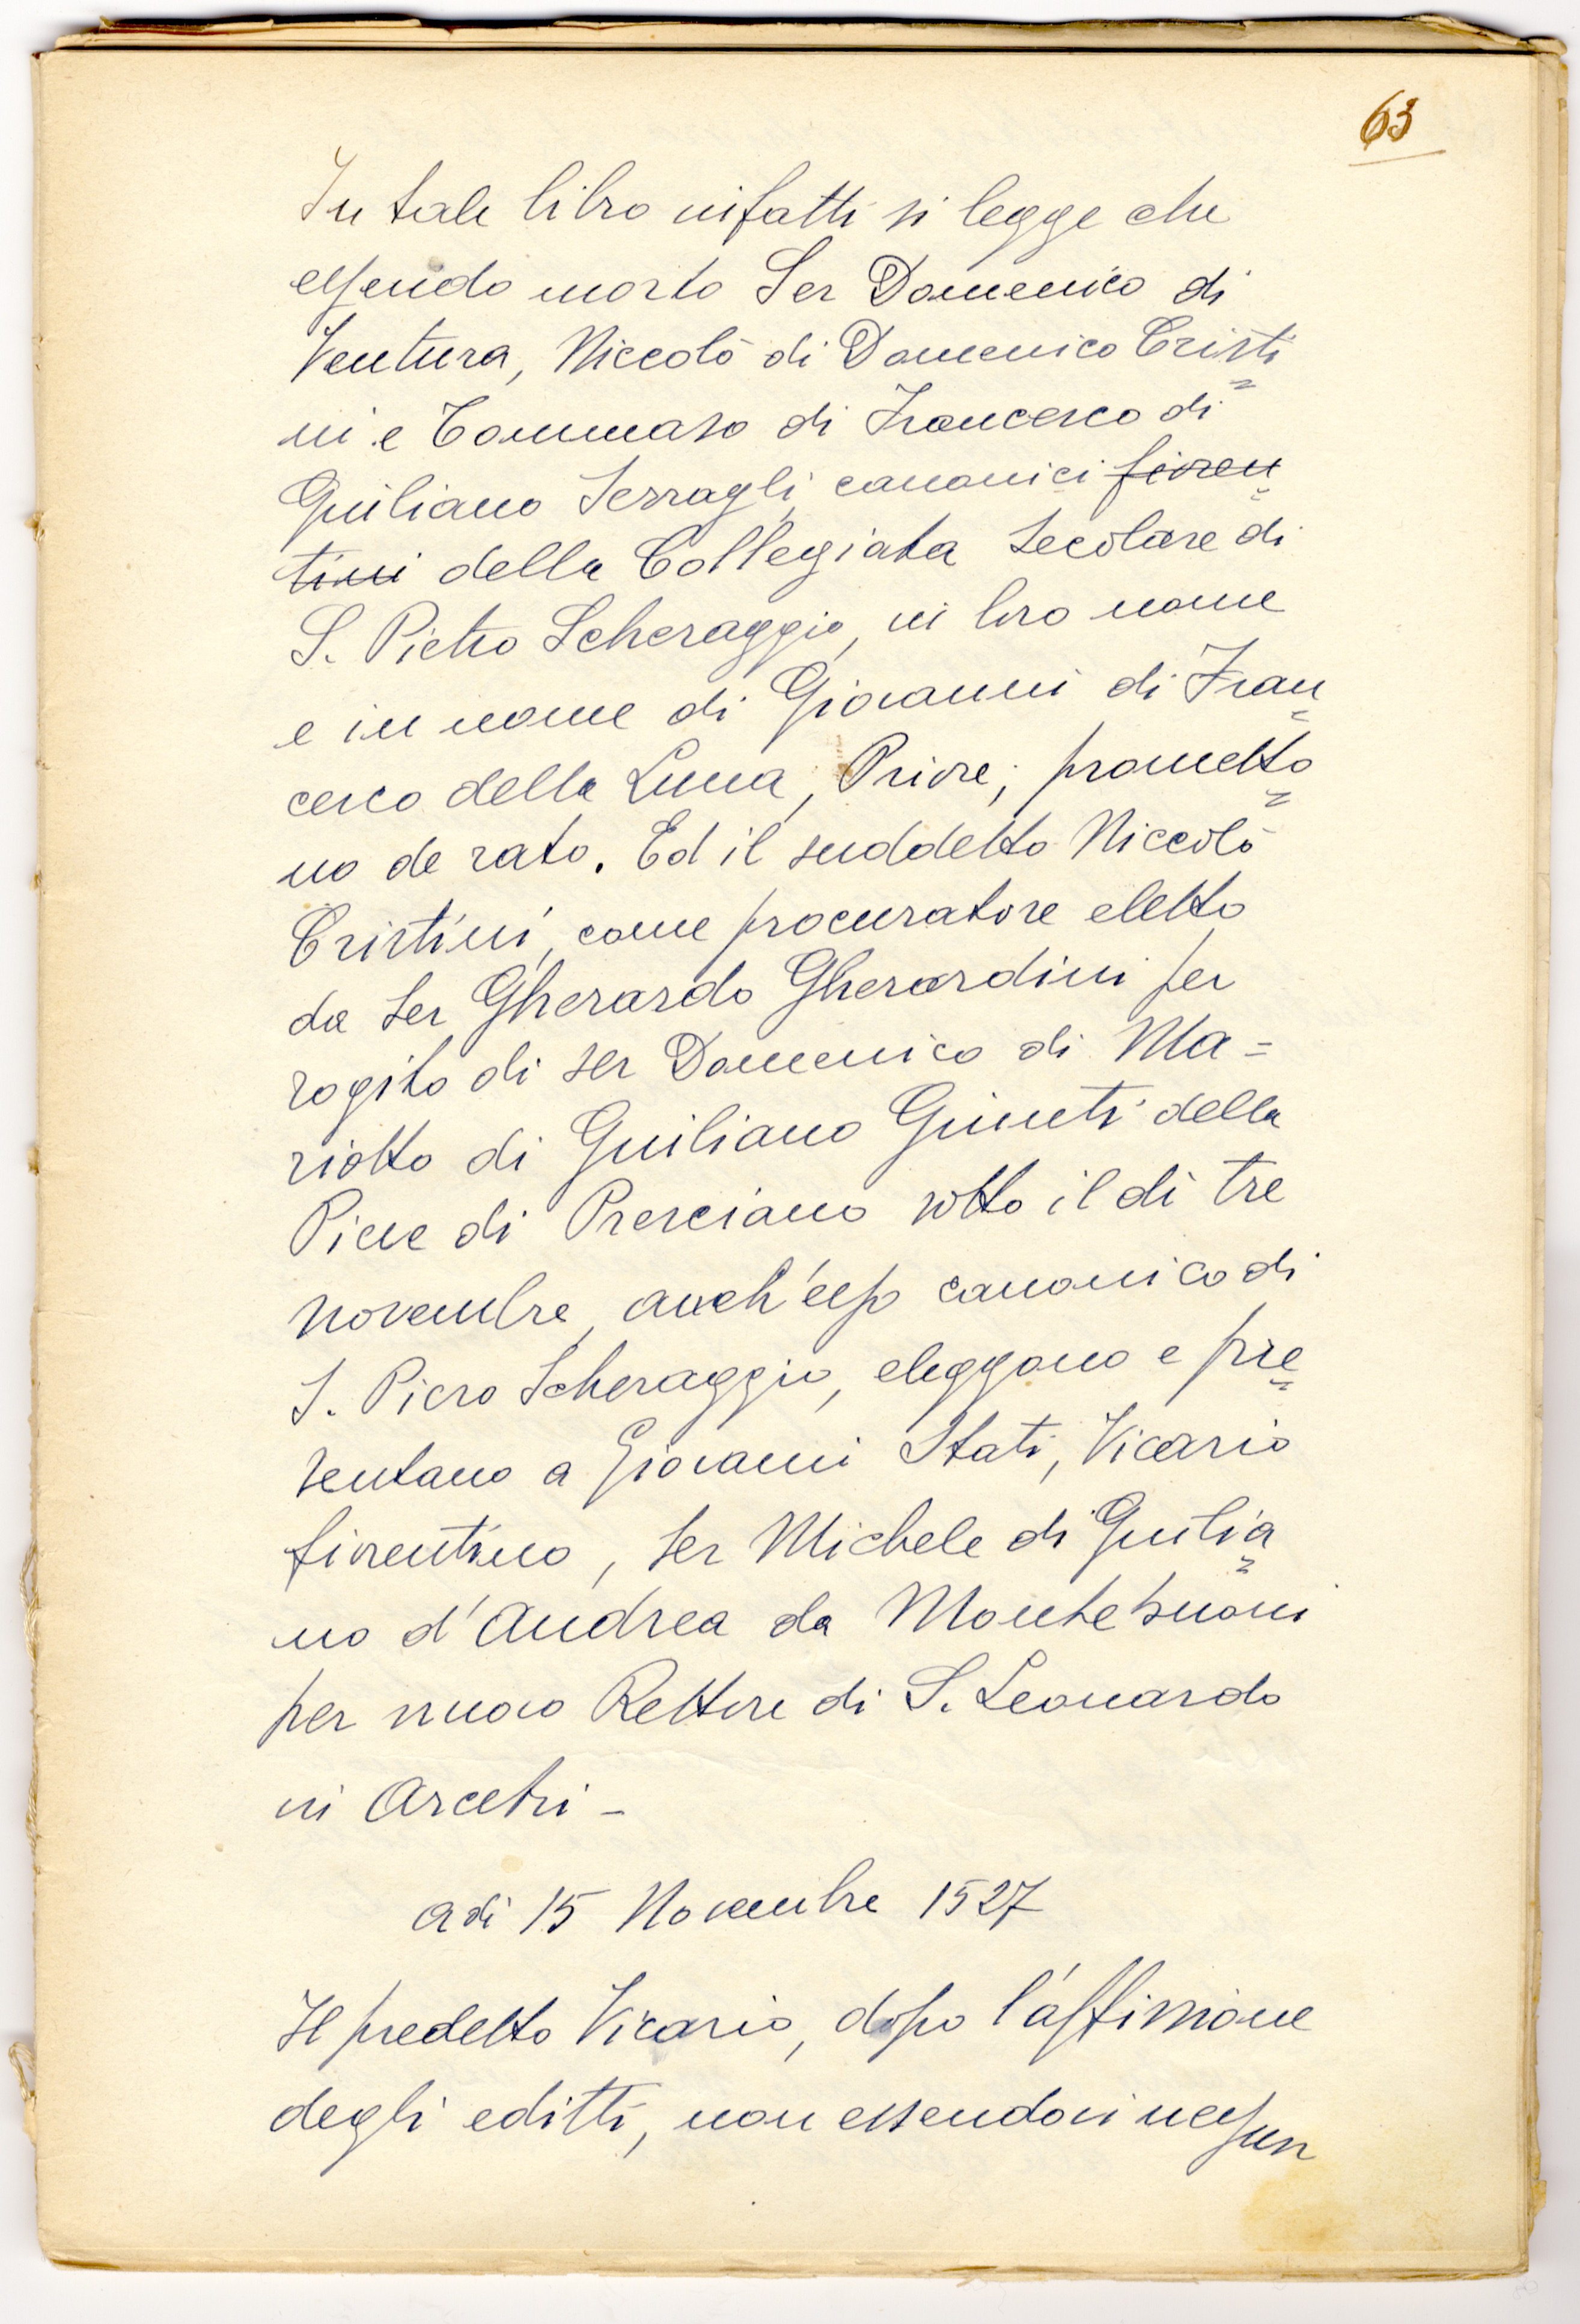 63
In tale libro infatti si legge che
essendo morto Ser Domenico di
Ventura, Niccolò di Domenico Cristi=
ni e Tommaso di Francesco di
Giuliano Serragli, canonici fioren=
tini della Collegiata Secolare di
S. Pietro Scheraggio, in loro nome
e in nome di Giovanni di Fran=
cesco della Luna, Priore; prometto=
no de rato. Ed il suddetto Niccolò
Cristini, come procuratore eletto
da Ser Gherardo Gherardini per
rogito di ser Domenico di Ma=
riotto di Giuliano Giunti della
Pieve di Presciano sotto il dì tre
novembre, anch'esso canonico di
S. Piero Scheraggio, eleggono e pre=
sentano a Giovanni Stati, Vicario
fiorentino, ser Michele di Giulia=
no d'Andrea da Montebuoni
per nuovo Rettore di S. Leonardo
in Arcetri -
adì 15 Novembre 1527
Il predetto Vicario, dopo l'affissione
degli editti, non essendovi nessun